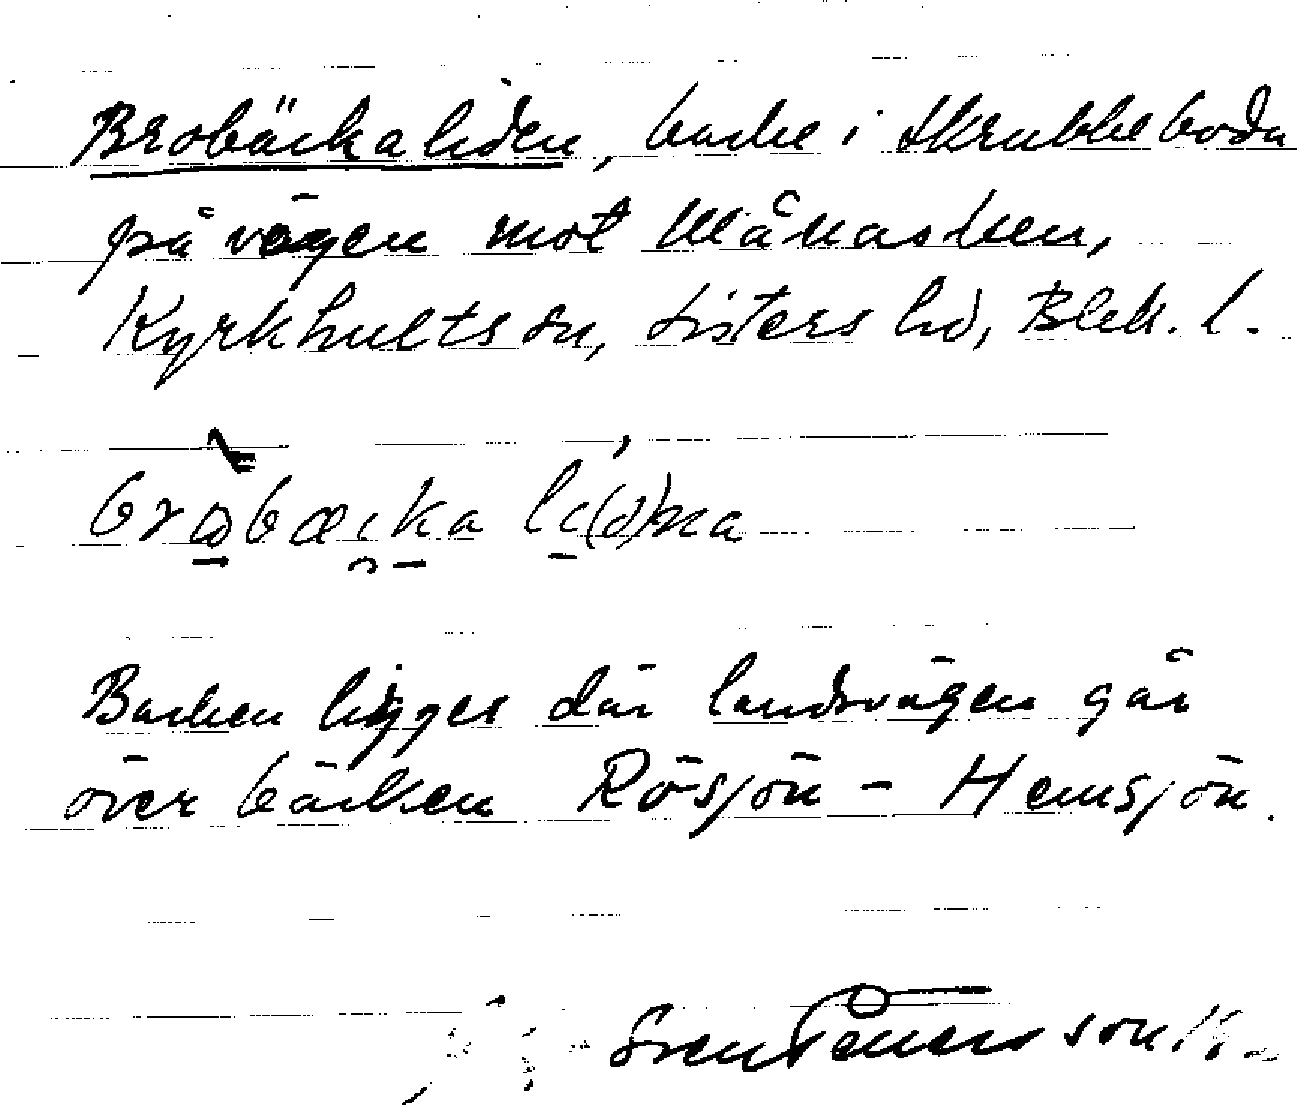 Brobäckaliden, backe i Skrubbeboda
på vägen mot Månasken,
Kyrkhults sn, Listers hd, Blek. l.
Backen ligger där landsvägen går
över bäcken Rösjön - Hemsjön.
Sven